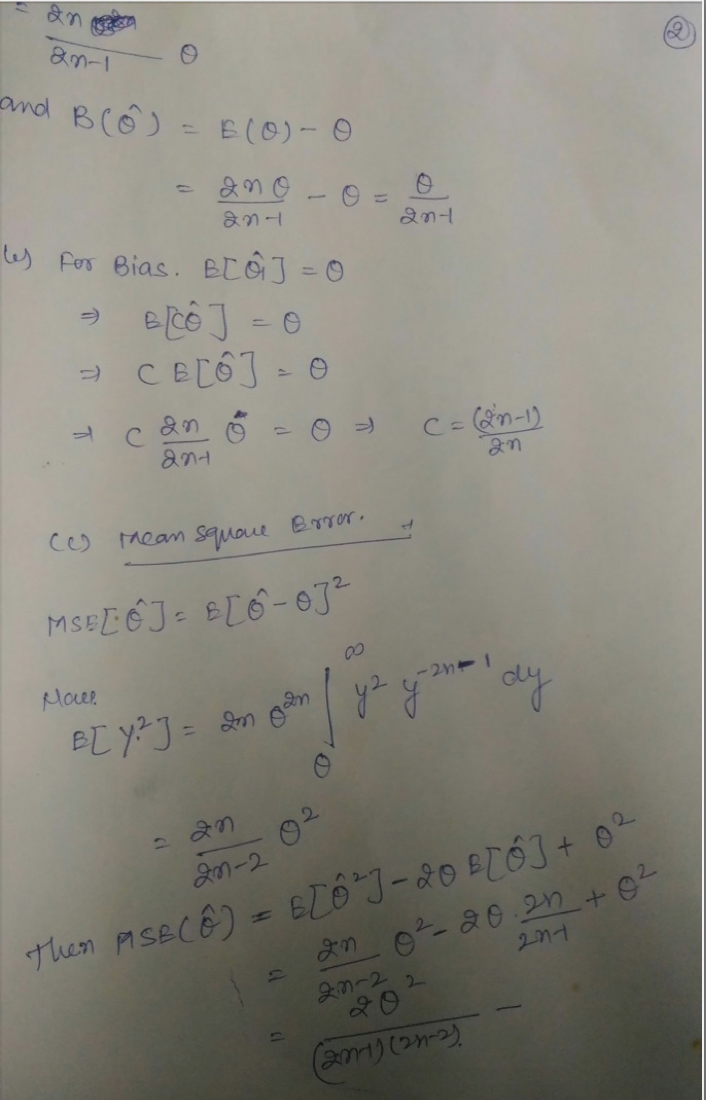 = 2n / 2n-1 θ
②
and B(θ̂) = E(θ) - θ
= 2nθ / 2n-1 - θ = θ / 2n-1
(b) For Bias. E[θ̂1] = θ
⇒ E[cθ̂] = θ
⇒ C E[θ̂] = θ
⇒ C 2n / 2n-1 θ = θ ⇒ C = (2n-1) / 2n
(c) Mean Square Error.
MSE[θ̂] = E[θ̂-θ]²
E[Y²] = 2n θ²ⁿ ∫_θ^∞ y² y^(-2n-1) dy
= 2n / 2n-2 θ²
Then MSE(θ̂) = E[θ̂²] - 2θ E[θ̂] + θ²
= 2n / 2n-2 θ² - 2θ · 2n / 2n-1 + θ²
= 2θ² / (2n-1)(2n-2).